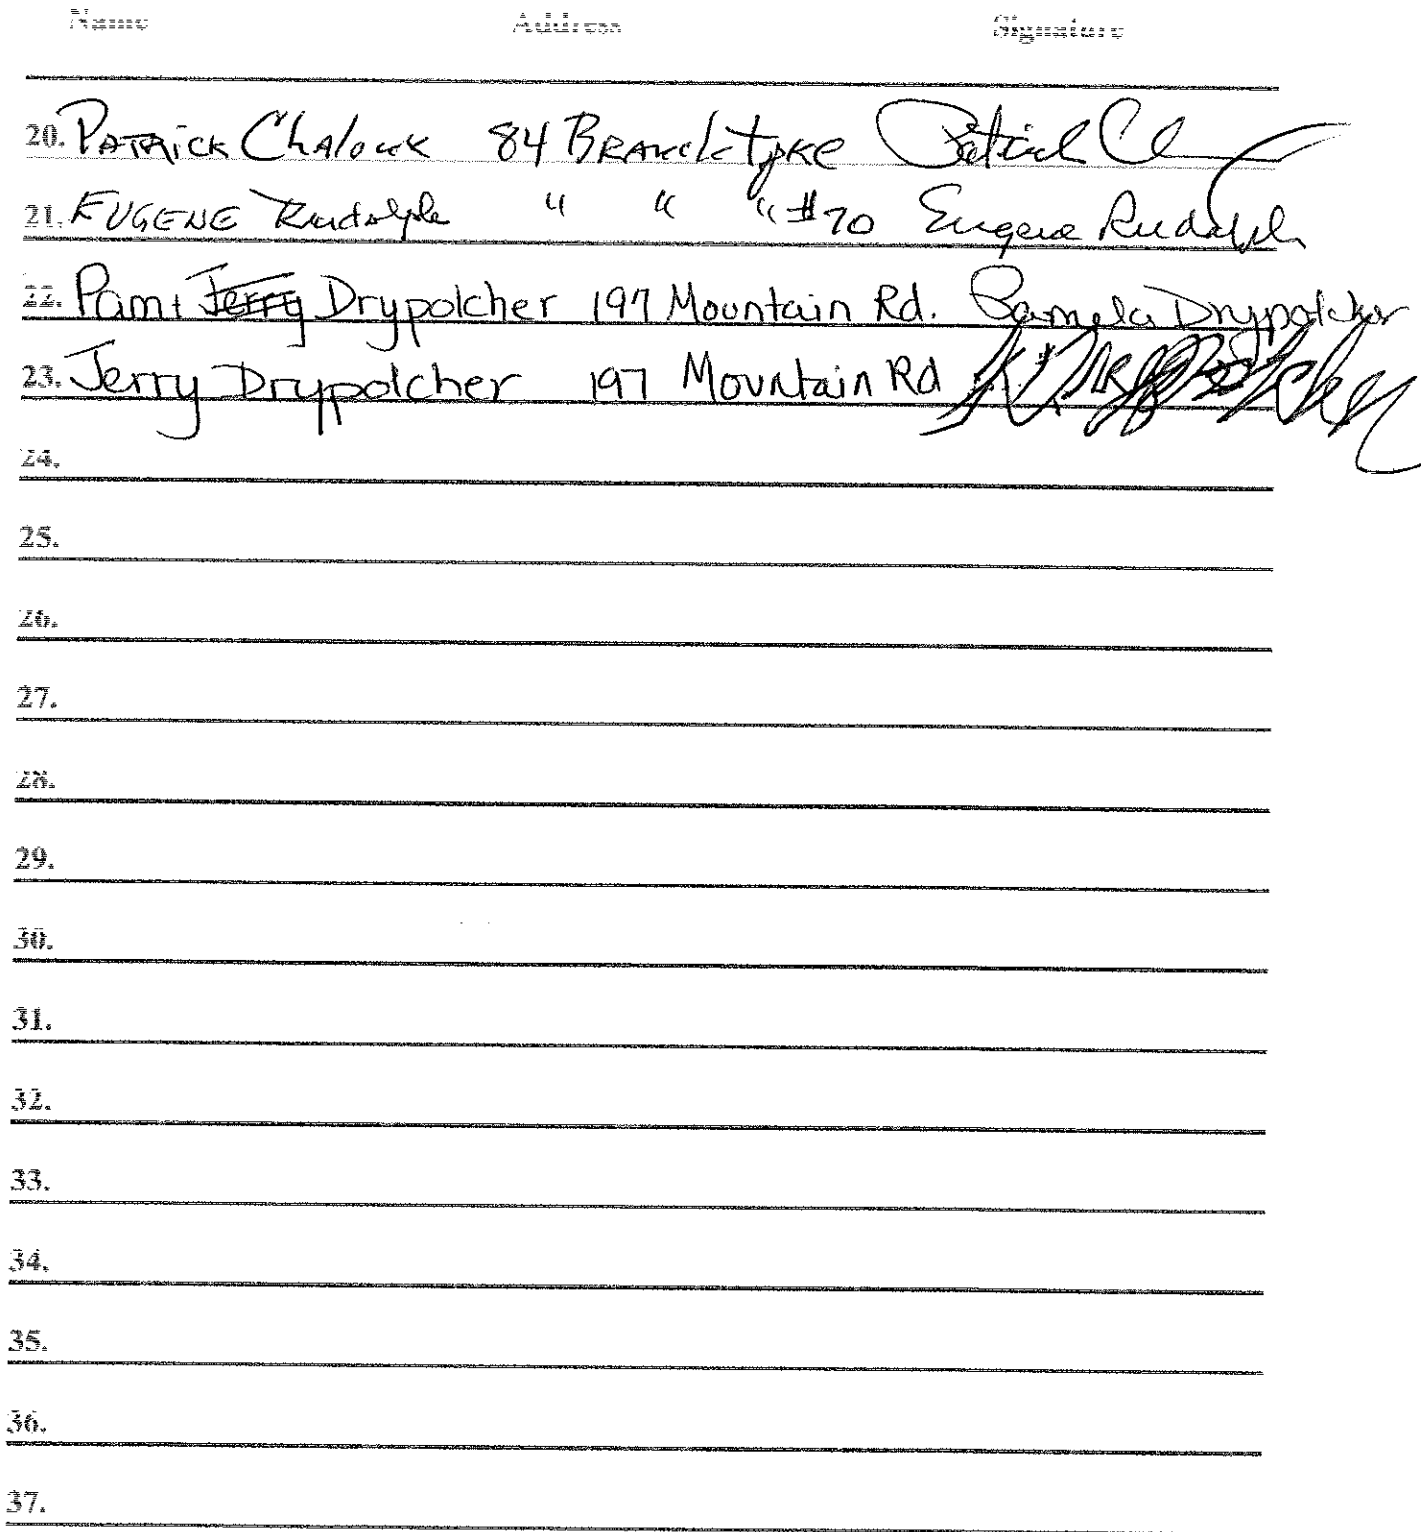 Name Address Signature
20. PATRICK Chalouk 84 Branch tpke Patrick C
21. EUGENE Rudolph " " " #70 Eugene Rudolph
22. Pam + Jerry Drypolcher 197 Mountain Rd. Pamela Drypolcher
23. Jerry Drypolcher 197 Mountain Rd
24.
25.
26.
27.
28.
29.
30.
31.
32.
33.
34.
35.
36.
37.